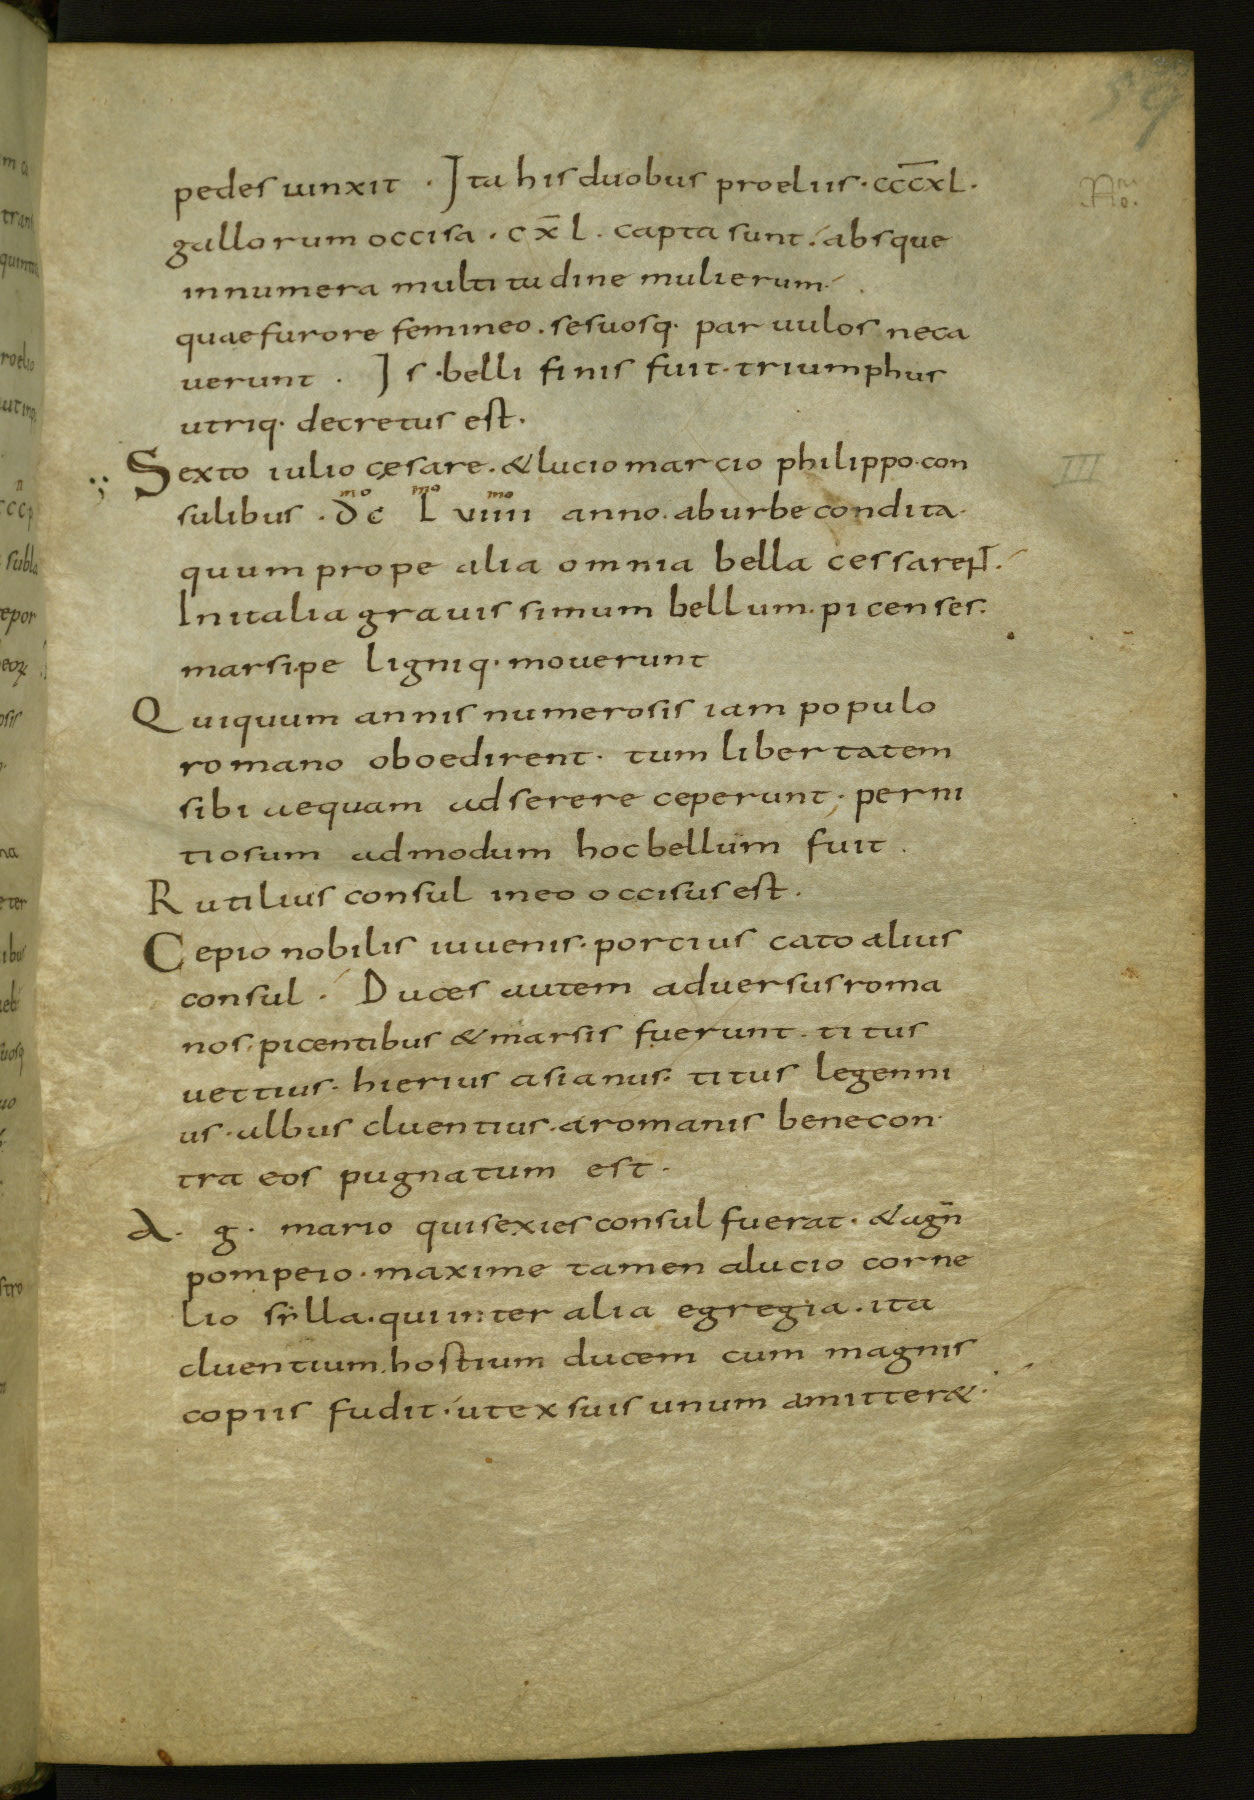 59
pedes uinxit · Ita his duobus proeliis · cc̅c̅xl ·
gallorum occisa · cx̅l · capta sunt · absque
innumera multitudine mulierum ·
quae furore femineo · se suosq· paruulos neca
uerunt · Is · belli finis fuit · triumphus
utriq· decretus est ·
Sexto iulio cęsare · & lucio marcio philippo · con
sulibus · dc̄ᵐᵒ lᵐᵒ uiiiiᵐᵒ anno · ab urbe condita ·
quum prope alia omnia bella cessarent ·
In italia grauissimum bellum · picenses ·
marsi · pe ligniq· mouerunt
Qui quum annis numerosis iam populo
romano oboedirent · tum libertatem
sibi aequam adserere ceperunt · perni
tiosum admodum hoc bellum fuit ·
Rutilius consul in eo occisus est ·
Cepio nobilis iuuenis · porcius cato alius
consul · Duces autem aduersus roma
nos · picentibus & marsis fuerunt · titus
uettius · hierius asianus · titus legenni
us · albus cluentius · a romanis bene con
tra eos pugnatum est ·
A · g · mario qui sexies consul fuerat · & agn̄
pompeio · maxime tamen a lucio corne
lio sẏlla · qui inter alia egregia · ita
cluentium · hostium ducem cum magnis
copiis fudit · ut ex suis unum amitter& ·
III